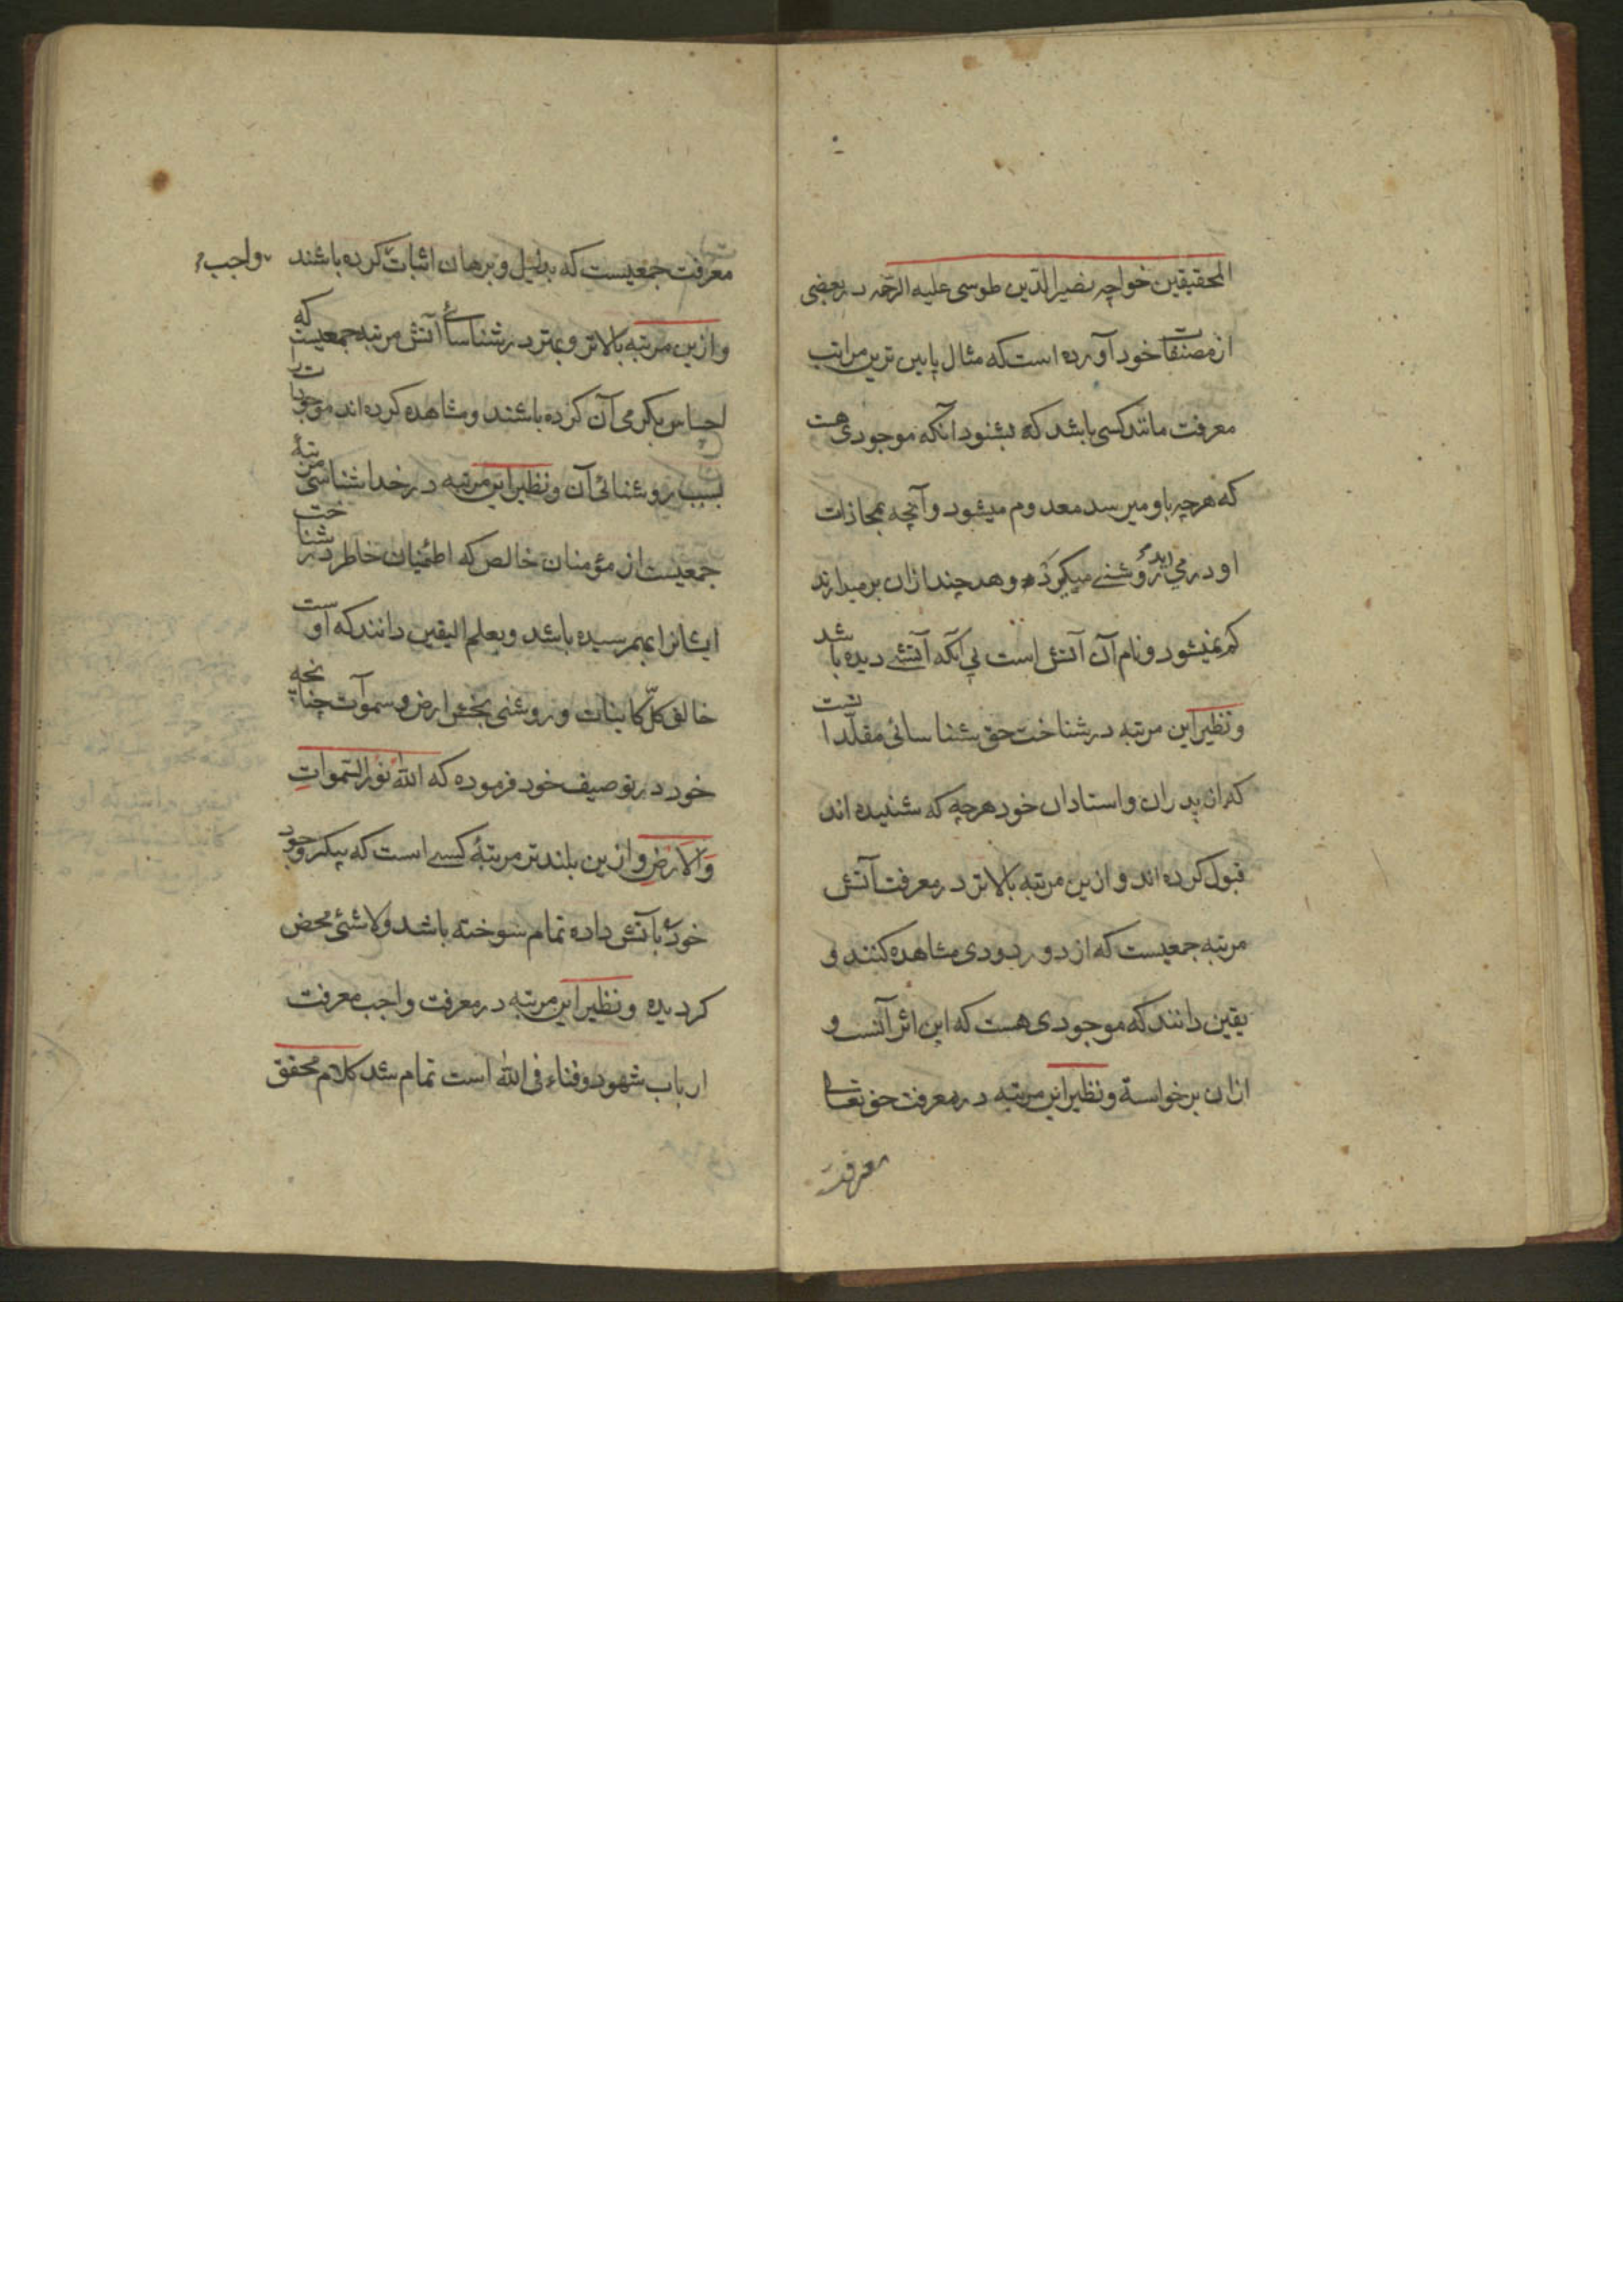 المحقیقین خواجه نصیر الدّین طوسی علیه الرحمه در بعضی
از مصنفات خود آورده است که مثال پایین ترین مراتب
معرفت مانند کسی باشد که بشنود انکه موجودی هست
که هرچه باو میرسد معدوم میشود و آنچه بمحاذات
او در می اید روشنے میکیرد و هر چند ازان بر میدارند
کم نمیشود و نام آن آتش است بی آنکه آتشے دیده باشد
و نظیر این مرتبه در شناخت حق شناسائی مقلّد است
که از پدران و استادان خود هرچه که شنیده اند
قبول کرده اند و ازین مرتبه بالاتر در معرفت آتش
مرتبه جمعیست که از دور دودی مشاهده کنند و
یقین دانند که موجودی هست که این اثر آنست و
ازان برخواسته و نظیر این مرتبه در معرفت حق تعالی
معرفت
معرفت جمعیست که بدلیل و برهان اثبات کرده باشند واجب
و ازین مرتبه بالاتر و بهتر در شناسائے آتش مرتبه جمعیست که
احساس بکرمی آن کرده باشند و مشاهده کرده اند موجودات
بسبب روشنائی آن و نظیر این مرتبه در خدا شناسی مرتبهٔ
جمعیست از مؤمنان خالص که اطمینان خاطر در شناخت
ایشانرا بهم رسیده باشد و بعلم الیقین دانند که او است
خالق کلّ کاینات و روشنی بخش ارض و سموآت چنانچه
خود در توصیف خود فرموده که اللّٰه نُورُ السَّمواتِ
وَالاَرضِ و ازین بلندتر مرتبهٔ کسے است که پیکر وجود
خود بآتش داده تمام سوخته باشد و لاشئ محض
کردیده و نظیر این مرتبه در معرفت واجب معرفت
ارباب شهود و فناء فی اللّٰه است تمام شد کلام محقق